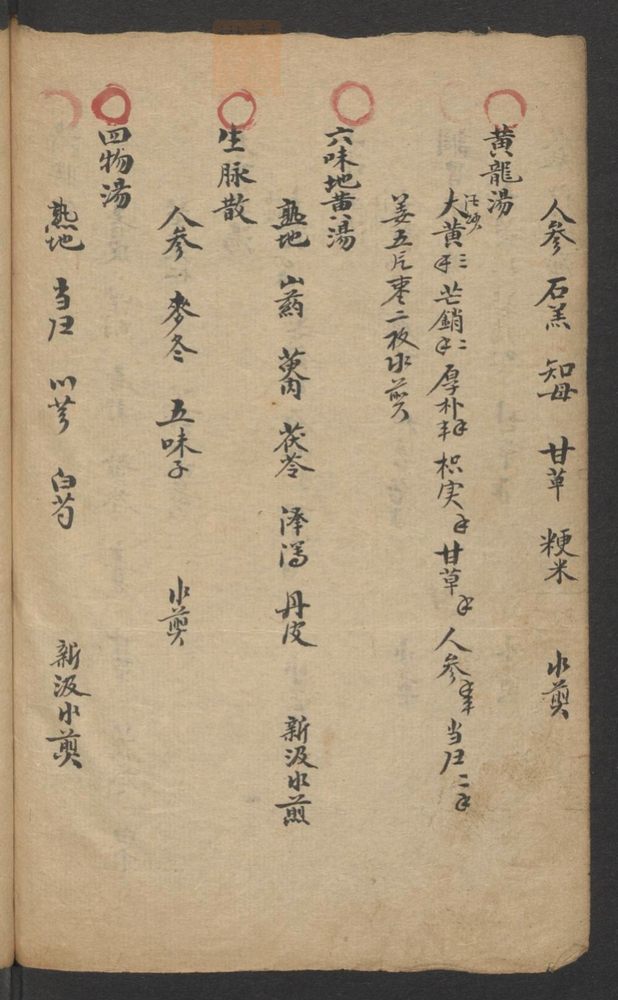 人参 石羔 知母 甘草 粳米 水煎
黄龍湯
大黄 酒炒 三 芒硝 二 厚朴 枳实 甘草 人参 当归 二
姜五片枣二枚水煎
六味地黄湯
熟地 山药 萸肉 茯苓 泽泻 丹皮 新汲水煎
生脉散
人参 麥冬 五味子 水煎
四物湯
熟地 当归 川芎 白芍 新汲水煎